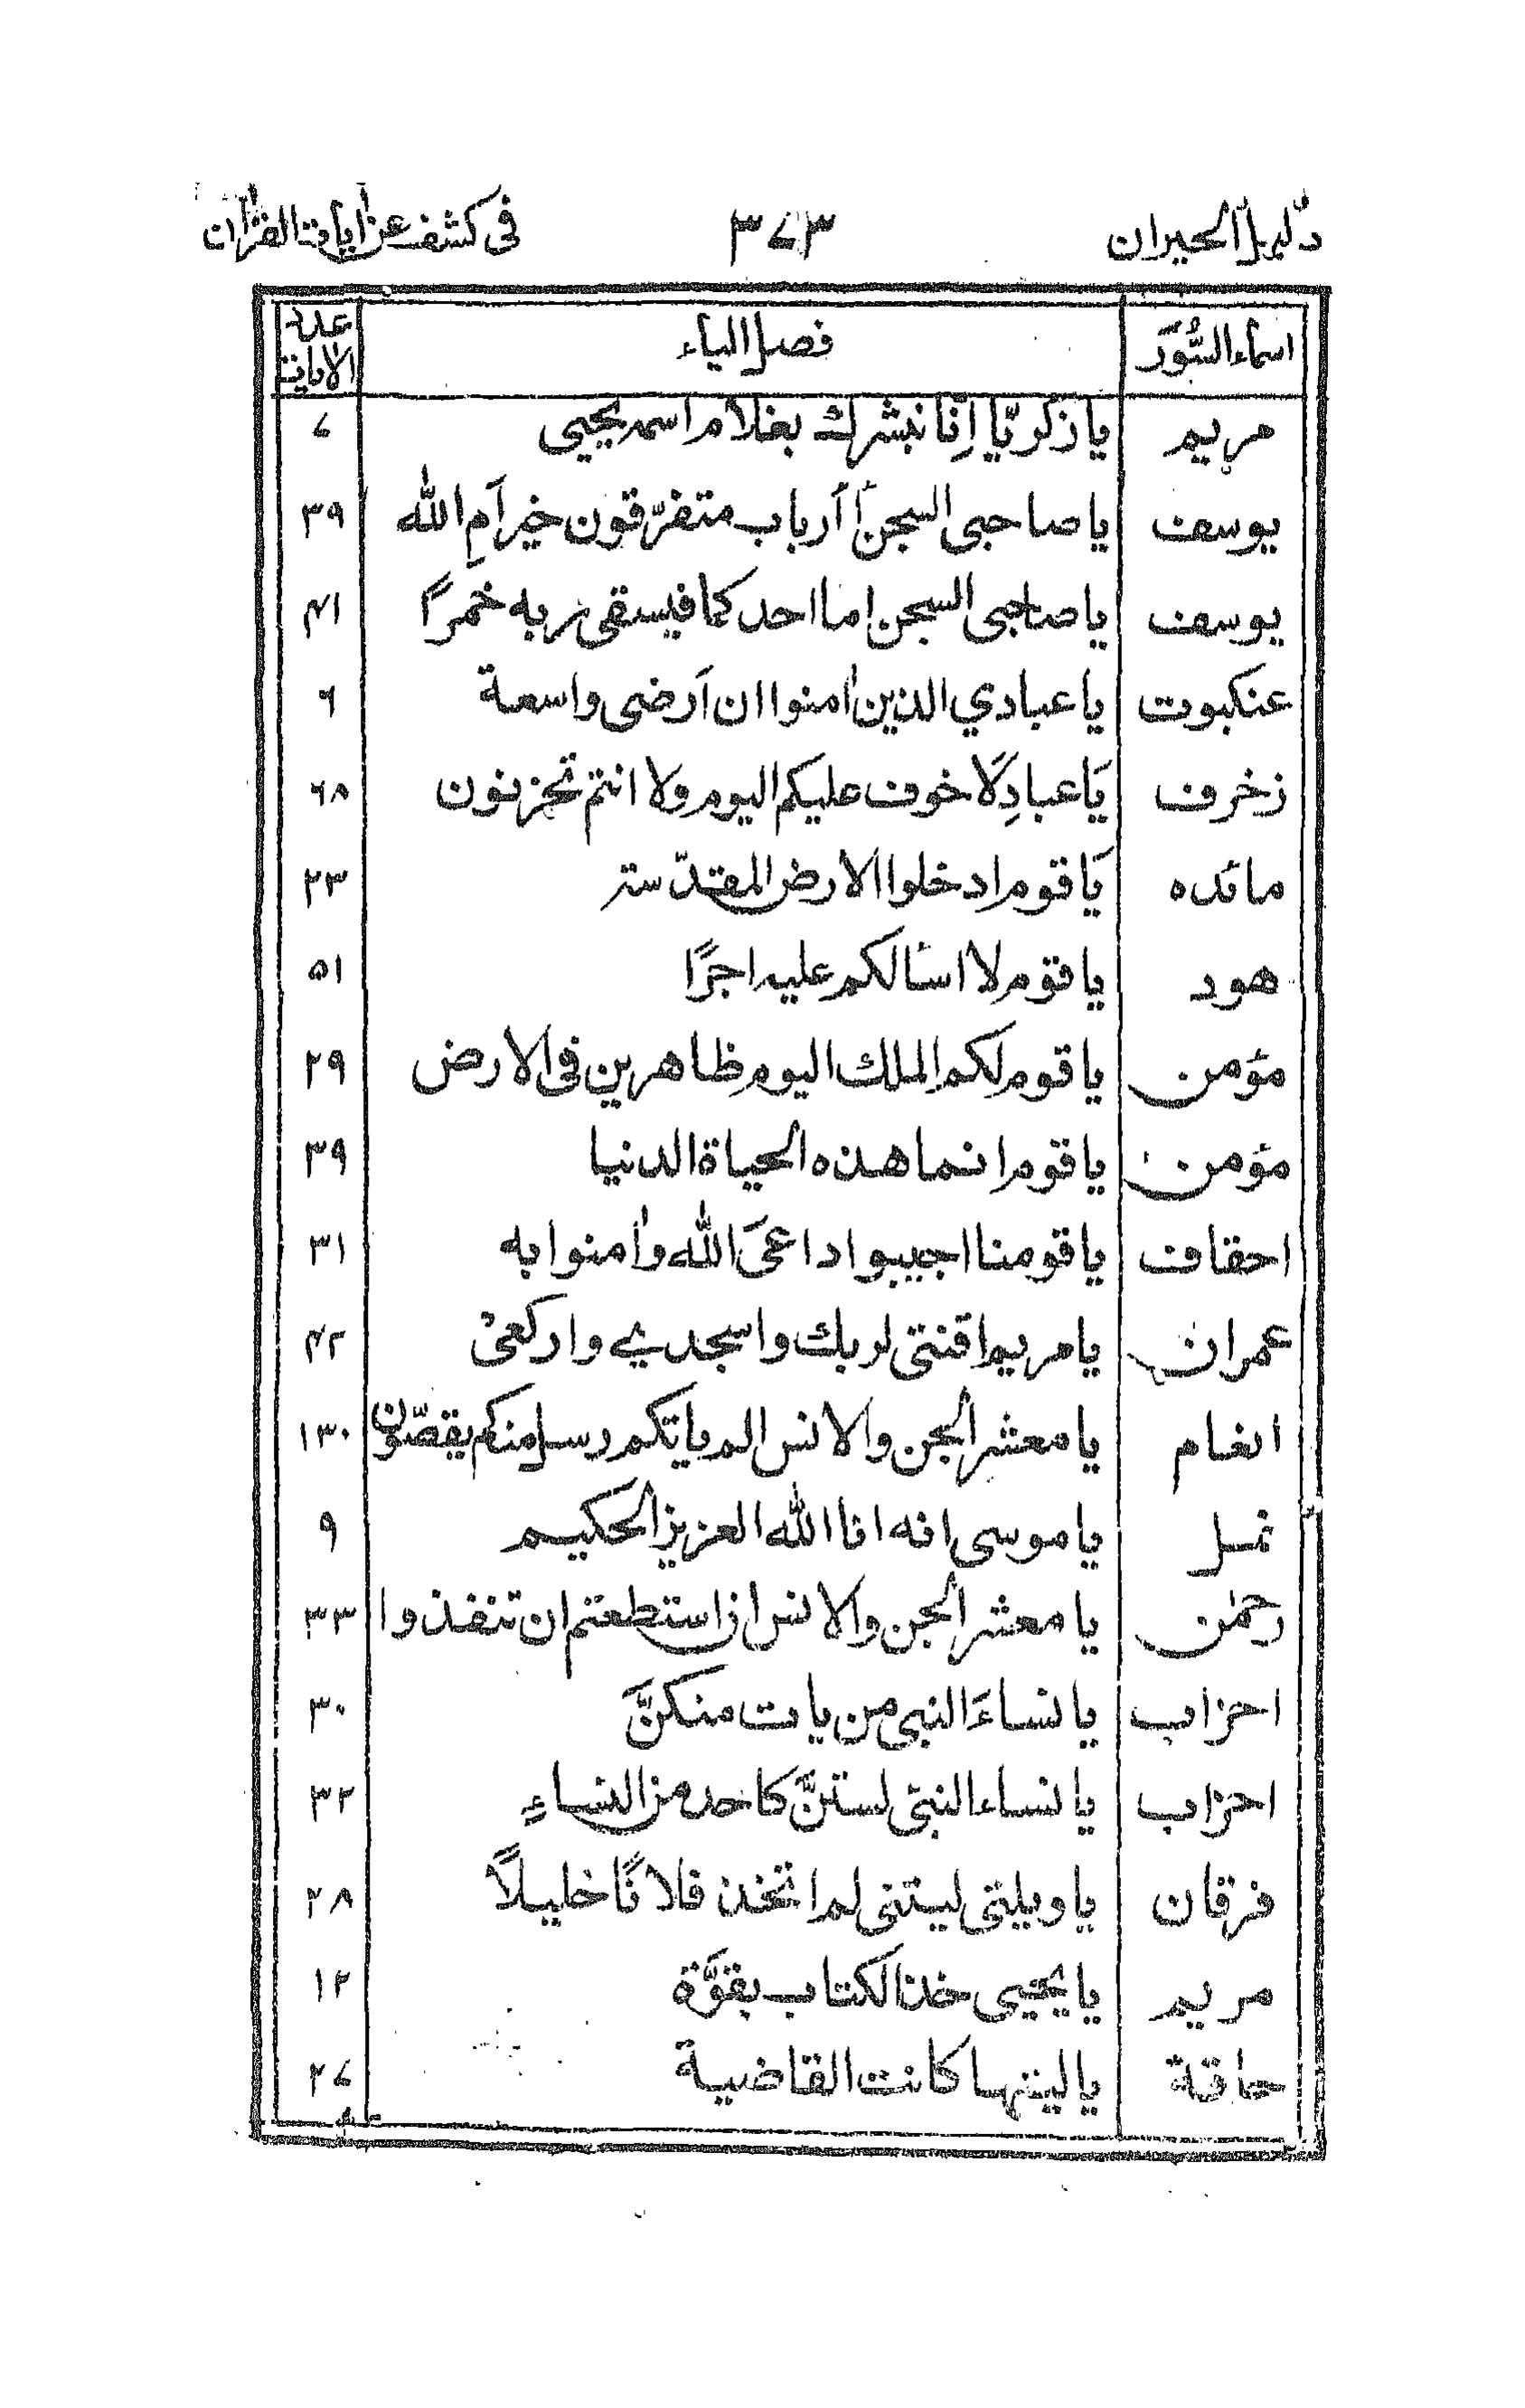 دليل الحيران ٣٧٣ فى كشف عن آيات القرآن
اسماء السُّوَر فصل الياء عدد الآيات
مريم يا زكريّا اِنّا نبشرك بغلام اسمه يحيى ٧
يوسف يا صاحبى السجن أَأَرباب متفرّقون خير اَمِ الله ٣٩
يوسف يا صاحبى السجن اما احد كما فيسقى ربه خمرًا ٤١
عنكبوت يا عبادي الذين اٰمنوا ان اَرضى واسعة ٦
زخرف يَا عبادِ لَا خوف عليكم اليوم ولا انتم تحزنون ٦٨
مائده يَا قوم ادخلوا الارض المقدّسة ٢٣
هود يا قوم لا اسألكم عليه اجرًا ٥١
مؤمن يا قوم لكم الملك اليوم ظاهرين فى الارض ٢٩
مؤمن يا قوم انما هذه الحياة الدنيا ٣٩
احقاف يا قومنا اجيبوا داعىَ الله واٰمنوا به ٣١
عمران يا مريم اقنتى لربك واسجدي واركعى ٤٢
انعام يا معشر الجن والانس الم ياتكم رسل منكم يقصّون ١٣٠
نمل يا موسى انه انا الله العزيز الحكيم ٩
رحمٰن يا معشر الجن والانس ان استطعتم ان تنفذوا ٣٣
احزاب يا نساءَ النبى من يات منكنَّ ٣٠
احزاب يا نساء النبى لستنَّ كاحد من النساءِ ٣٢
فرقان يا ويلتى ليتنى لم اتخذ فلانًا خليلًا ٢٨
مريم يا يحيى خذ الكتاب بقوَّة ١٢
حاقة يا ليتها كانت القاضية ٢٧